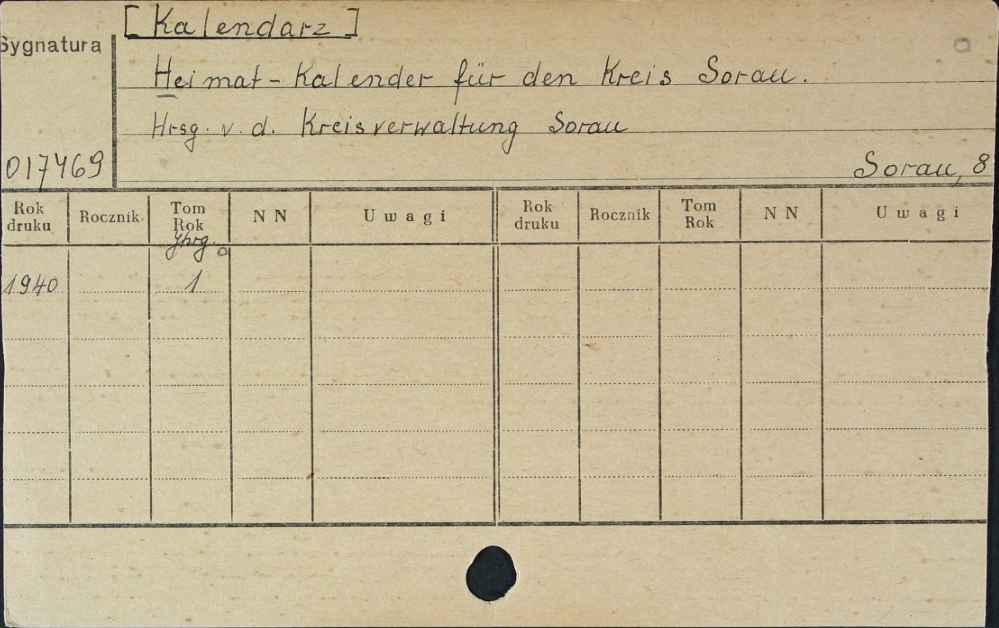 [Kalendarz]
Sygnatura
Heimat-Kalender für den Kreis Sorau.
Hrsg. v. d. Kreisverwaltung Sorau
017469
Sorau, 8
Rok druku Rocznik Tom Rok NN Uwagi Rok druku Rocznik Tom Rok NN Uwagi
Jhrg.
1940 1